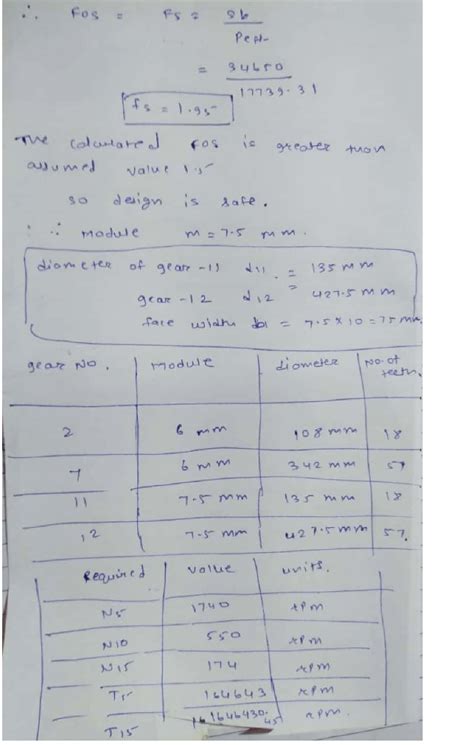 ∴ FOS = Fs = Sb / Peff
= 34650 / 17739.31
fs = 1.95
The calculated FOS is greater than
assumed value 1.5
so design is safe.
∴ module m = 7.5 mm.
diameter of gear - 11 d11 = 135 mm
gear - 12 d12 = 427.5 mm
face width b1 = 7.5 × 10 = 75 mm.
gear No. module diameter No. of teeth.
2 6 mm 108 mm 18
7 6 mm 342 mm 57
11 7.5 mm 135 mm 18
12 7.5 mm 427.5 mm 57
Required value units.
N5 1740 rpm
N10 550 rpm
N15 174 rpm
T5 164643 rpm
T15 1646430.45 rpm.